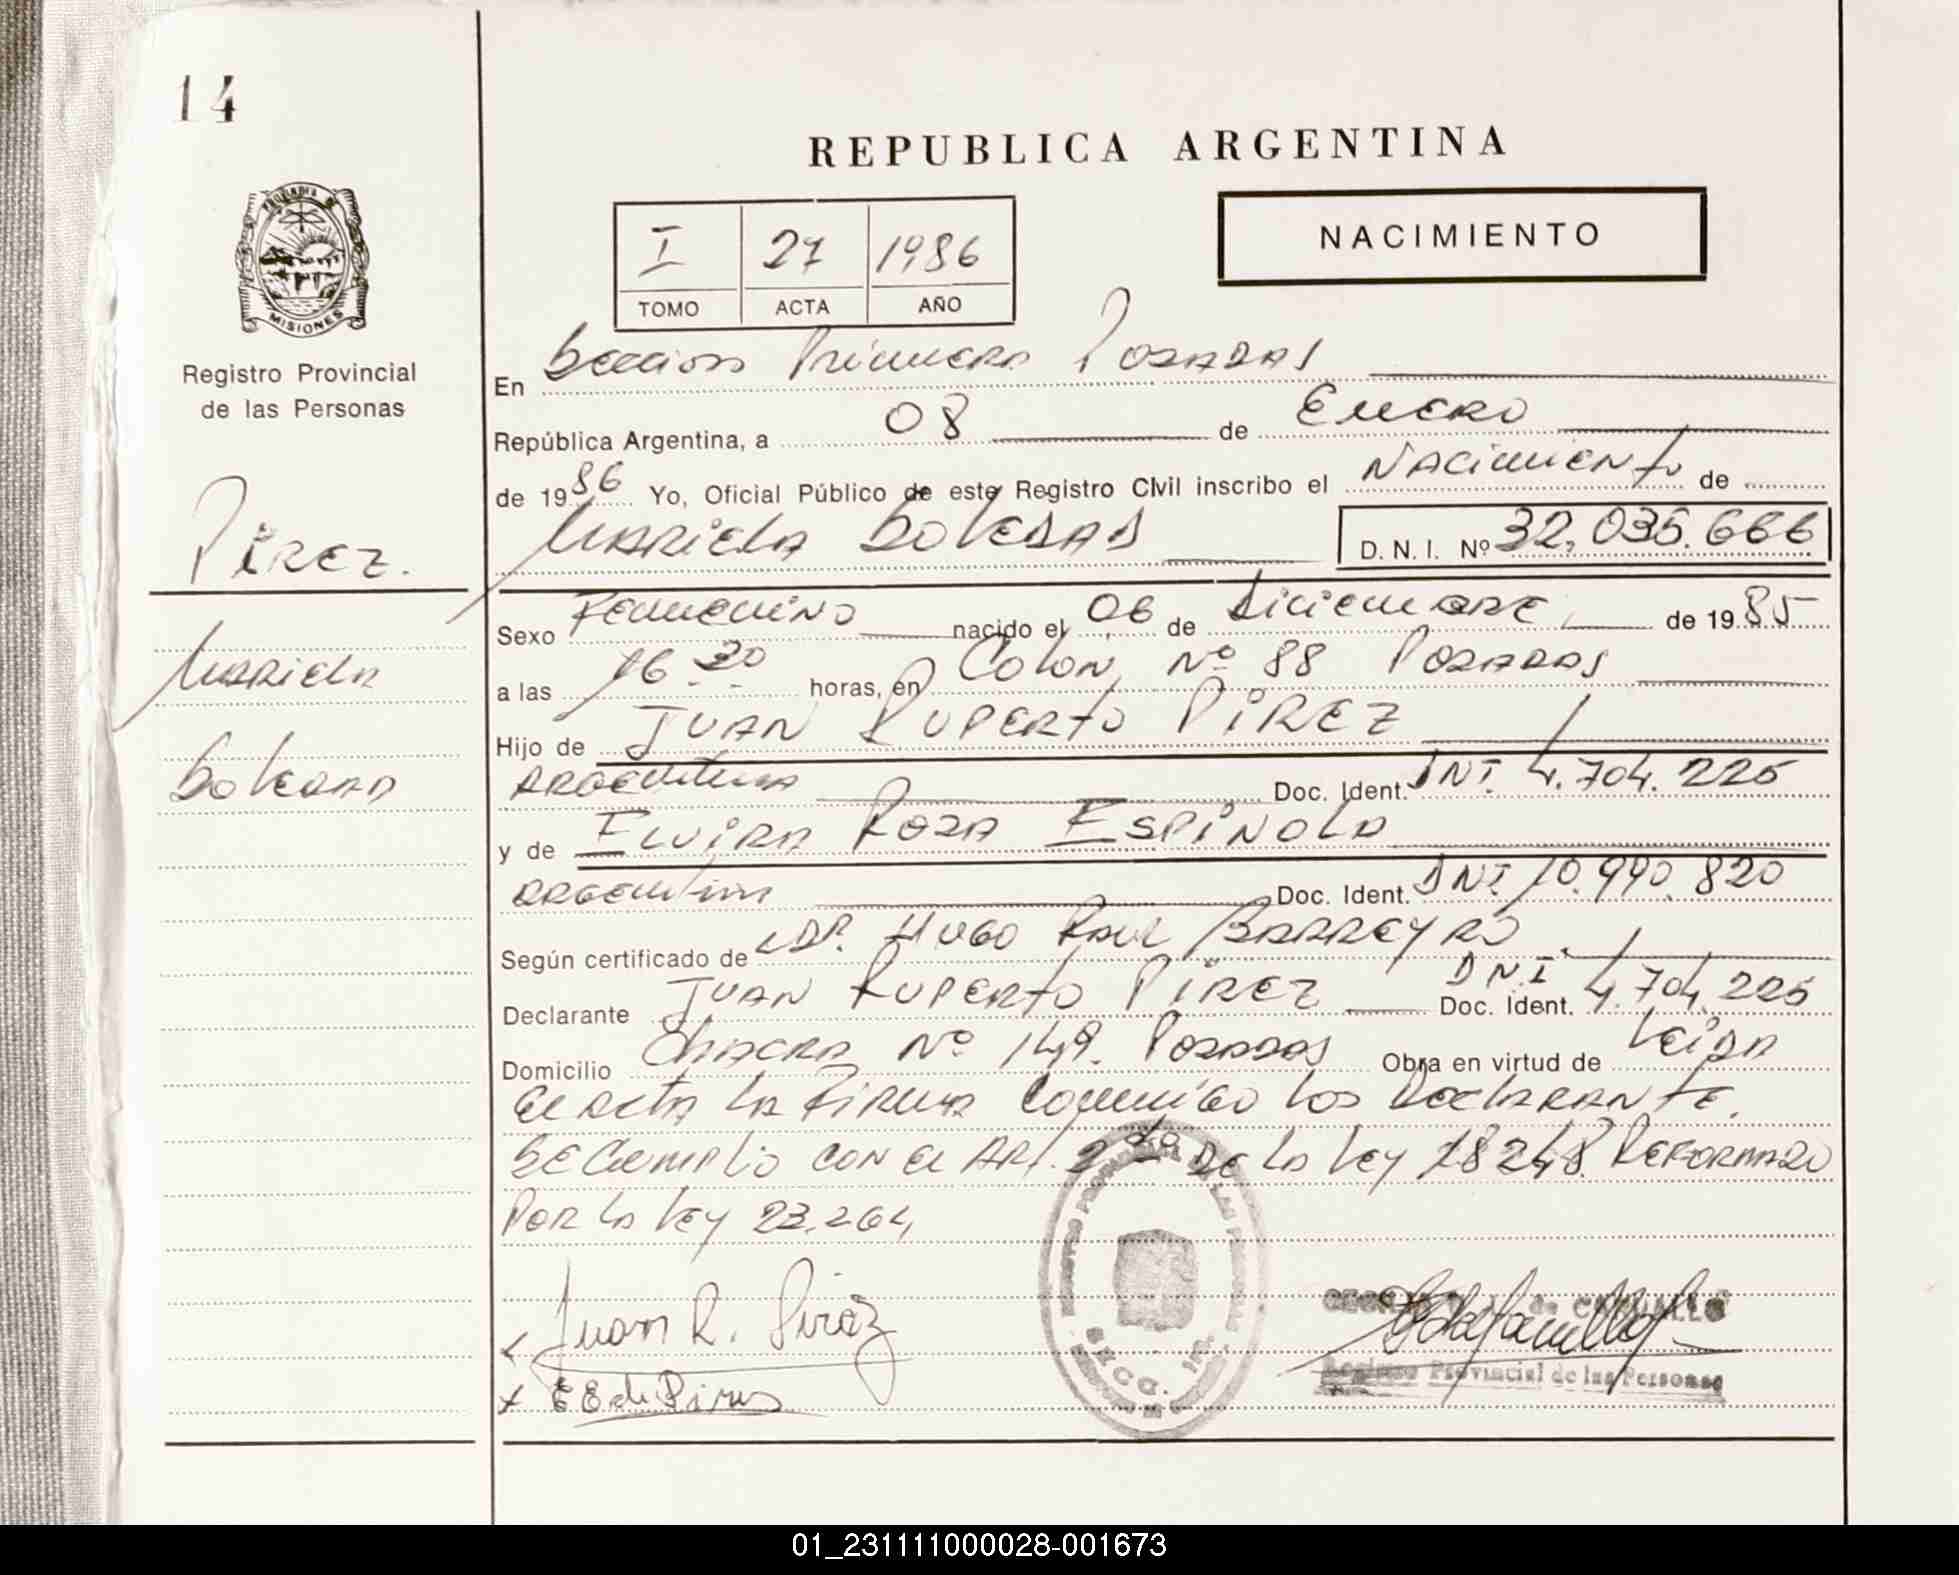 14
REPUBLICA ARGENTINA
PROVINCIA DE
MISIONES
I 27 1986
TOMO ACTA AÑO
NACIMIENTO
Registro Provincial
de las Personas
Pirez.
Mariela
Soledad
En Seccion Primera Posadas
República Argentina, a 08 de Enero
de 1986 Yo, Oficial Público de este Registro Civil inscribo el Nacimiento de
Mariela Soledad D. N. I. Nº 32.035.666
Sexo Femenino nacido el 06 de Diciembre de 1985
a las 16.30 horas, en Colon Nº 88 Posadas
Hijo de JUAN RUPERTO PIREZ
Argentina Doc. Ident. DNI. 4.704.225
y de ELVIRA ROSA ESPINOLA
Argentina Doc. Ident. DNI 10.990.820
Según certificado de DR. HUGO RAUL BARREYRO
Declarante JUAN RUPERTO PIREZ Doc. Ident. DNI 4.704.225
Domicilio Chacra Nº 149. Posadas Obra en virtud de Leida
el acta la firma conmigo los Declarante.
Se Cumplio con el Art. 2do de la Ley 18248 Reformado
Por la Ley 23.264
Juan R. Piraz
E E de Pires
SECC. 1ra.
de CARVALLO
Registro Provincial de las Personas
01_231111000028-001673